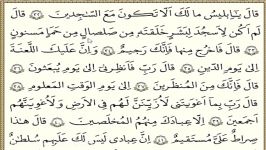 قَالَ يَٰٓإِبْلِيسُ مَا لَكَ أَلَّا تَكُونَ مَعَ ٱلسَّٰجِدِينَ ٣٢ قَالَ
لَمْ أَكُن لِّأَسْجُدَ لِبَشَرٍ خَلَقْتَهُۥ مِن صَلْصَٰلٍ مِّنْ حَمَإٍ مَّسْنُونٍ
٣٣ قَالَ فَٱخْرُجْ مِنْهَا فَإِنَّكَ رَجِيمٌ ٣٤ وَإِنَّ عَلَيْكَ ٱللَّعْنَةَ
إِلَىٰ يَوْمِ ٱلدِّينِ ٣٥ قَالَ رَبِّ فَأَنظِرْنِىٓ إِلَىٰ يَوْمِ يُبْعَثُونَ ٣٦
قَالَ فَإِنَّكَ مِنَ ٱلْمُنظَرِينَ ٣٧ إِلَىٰ يَوْمِ ٱلْوَقْتِ ٱلْمَعْلُومِ ٣٨
قَالَ رَبِّ بِمَآ أَغْوَيْتَنِى لَأُزَيِّنَنَّ لَهُمْ فِى ٱلْأَرْضِ وَلَأُغْوِيَنَّهُمْ
أَجْمَعِينَ ٣٩ إِلَّا عِبَادَكَ مِنْهُمُ ٱلْمُخْلَصِينَ ٤٠ قَالَ هَٰذَا
صِرَٰطٌ عَلَىَّ مُسْتَقِيمٌ ٤١ إِنَّ عِبَادِى لَيْسَ لَكَ عَلَيْهِمْ سُلْطَٰنٌ